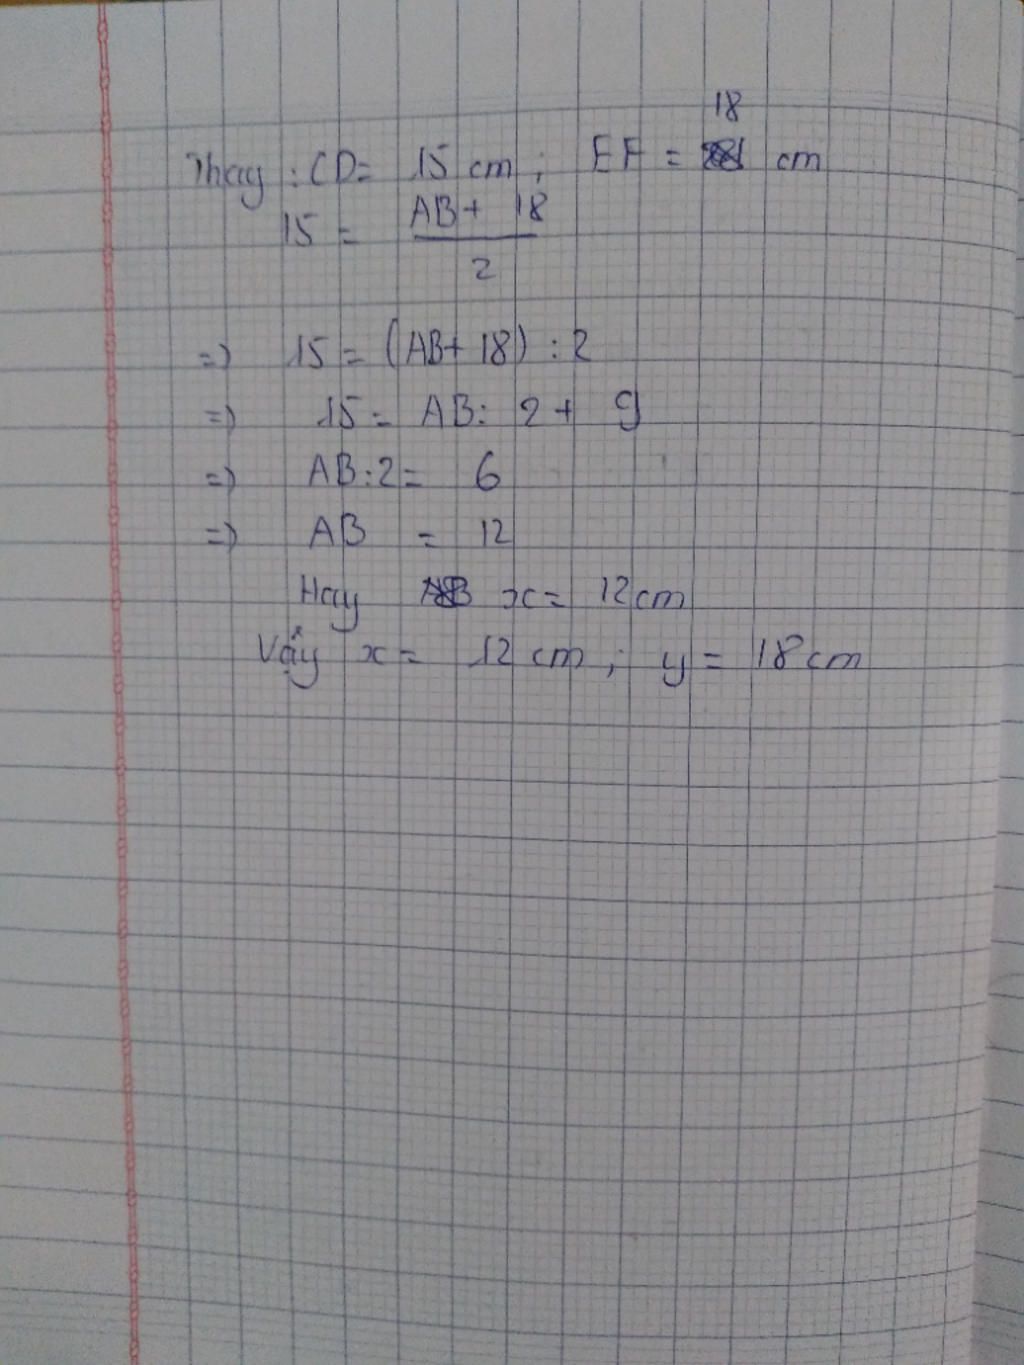 18
Thay : CD = 15 cm ; EF = cm
15 = AB + 18
2
=> 15 = (AB + 18) : 2
=> 15 = AB : 2 + 9
=> AB : 2 = 6
=> AB = 12
Hay x = 12 cm
Vậy x = 12 cm ; y = 18 cm